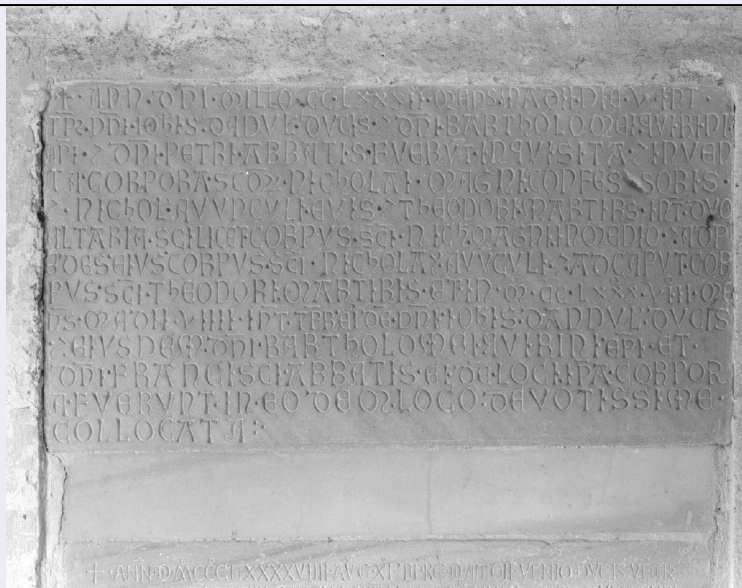 ANN·DNI·MILLO·CC·LXXXII·MENS·MADII·DIE·V·INT·
TPR·DNI·IOHIS·DADVL·DVCIS·⁊·DNI·BARTHOLOMEI·QVIRINI
EPI·⁊·DNI·PETRI·ABBATIS·FVERVT·INQVISITA·⁊·INVEN
TA·CORPORA·SCOꝜ·NICHOLAI·MAGNI·CONFESSORIS·
⁊·NICHOL·AVVNCVLI·EVIS·⁊·THEODORI·MARTIRS·INT·DVO
ALTARIA·SCILICET·CORPVS·SCI·NICH·MAGNI·IN MEDIO·AD P
EDES EIVS CORPVS·SCI·NICHOLAI·AVVCVLI·⁊·AD CAPVT·COR
PVS·SCI·THEODORI·MARTIRIS·ET IN·M·CC·LXXX·VIIII·ME
NS·MADII·VIIII·INT·TPRE·DE·DNI·IOHIS·DANDVL·DVCIS
⁊·EIVSDEM·DNI·BARTHOLOMEI·QVIRINI·EPI·ET·
DNI·FRANCISCI·ABBATIS·EIVSDE·LOCI·IPA·CORPOR
A·FVERVNT·IN·EODEM·LOCO·DEVOTISSIME·
COLLOCATA:
+ ANN·D·MCCC